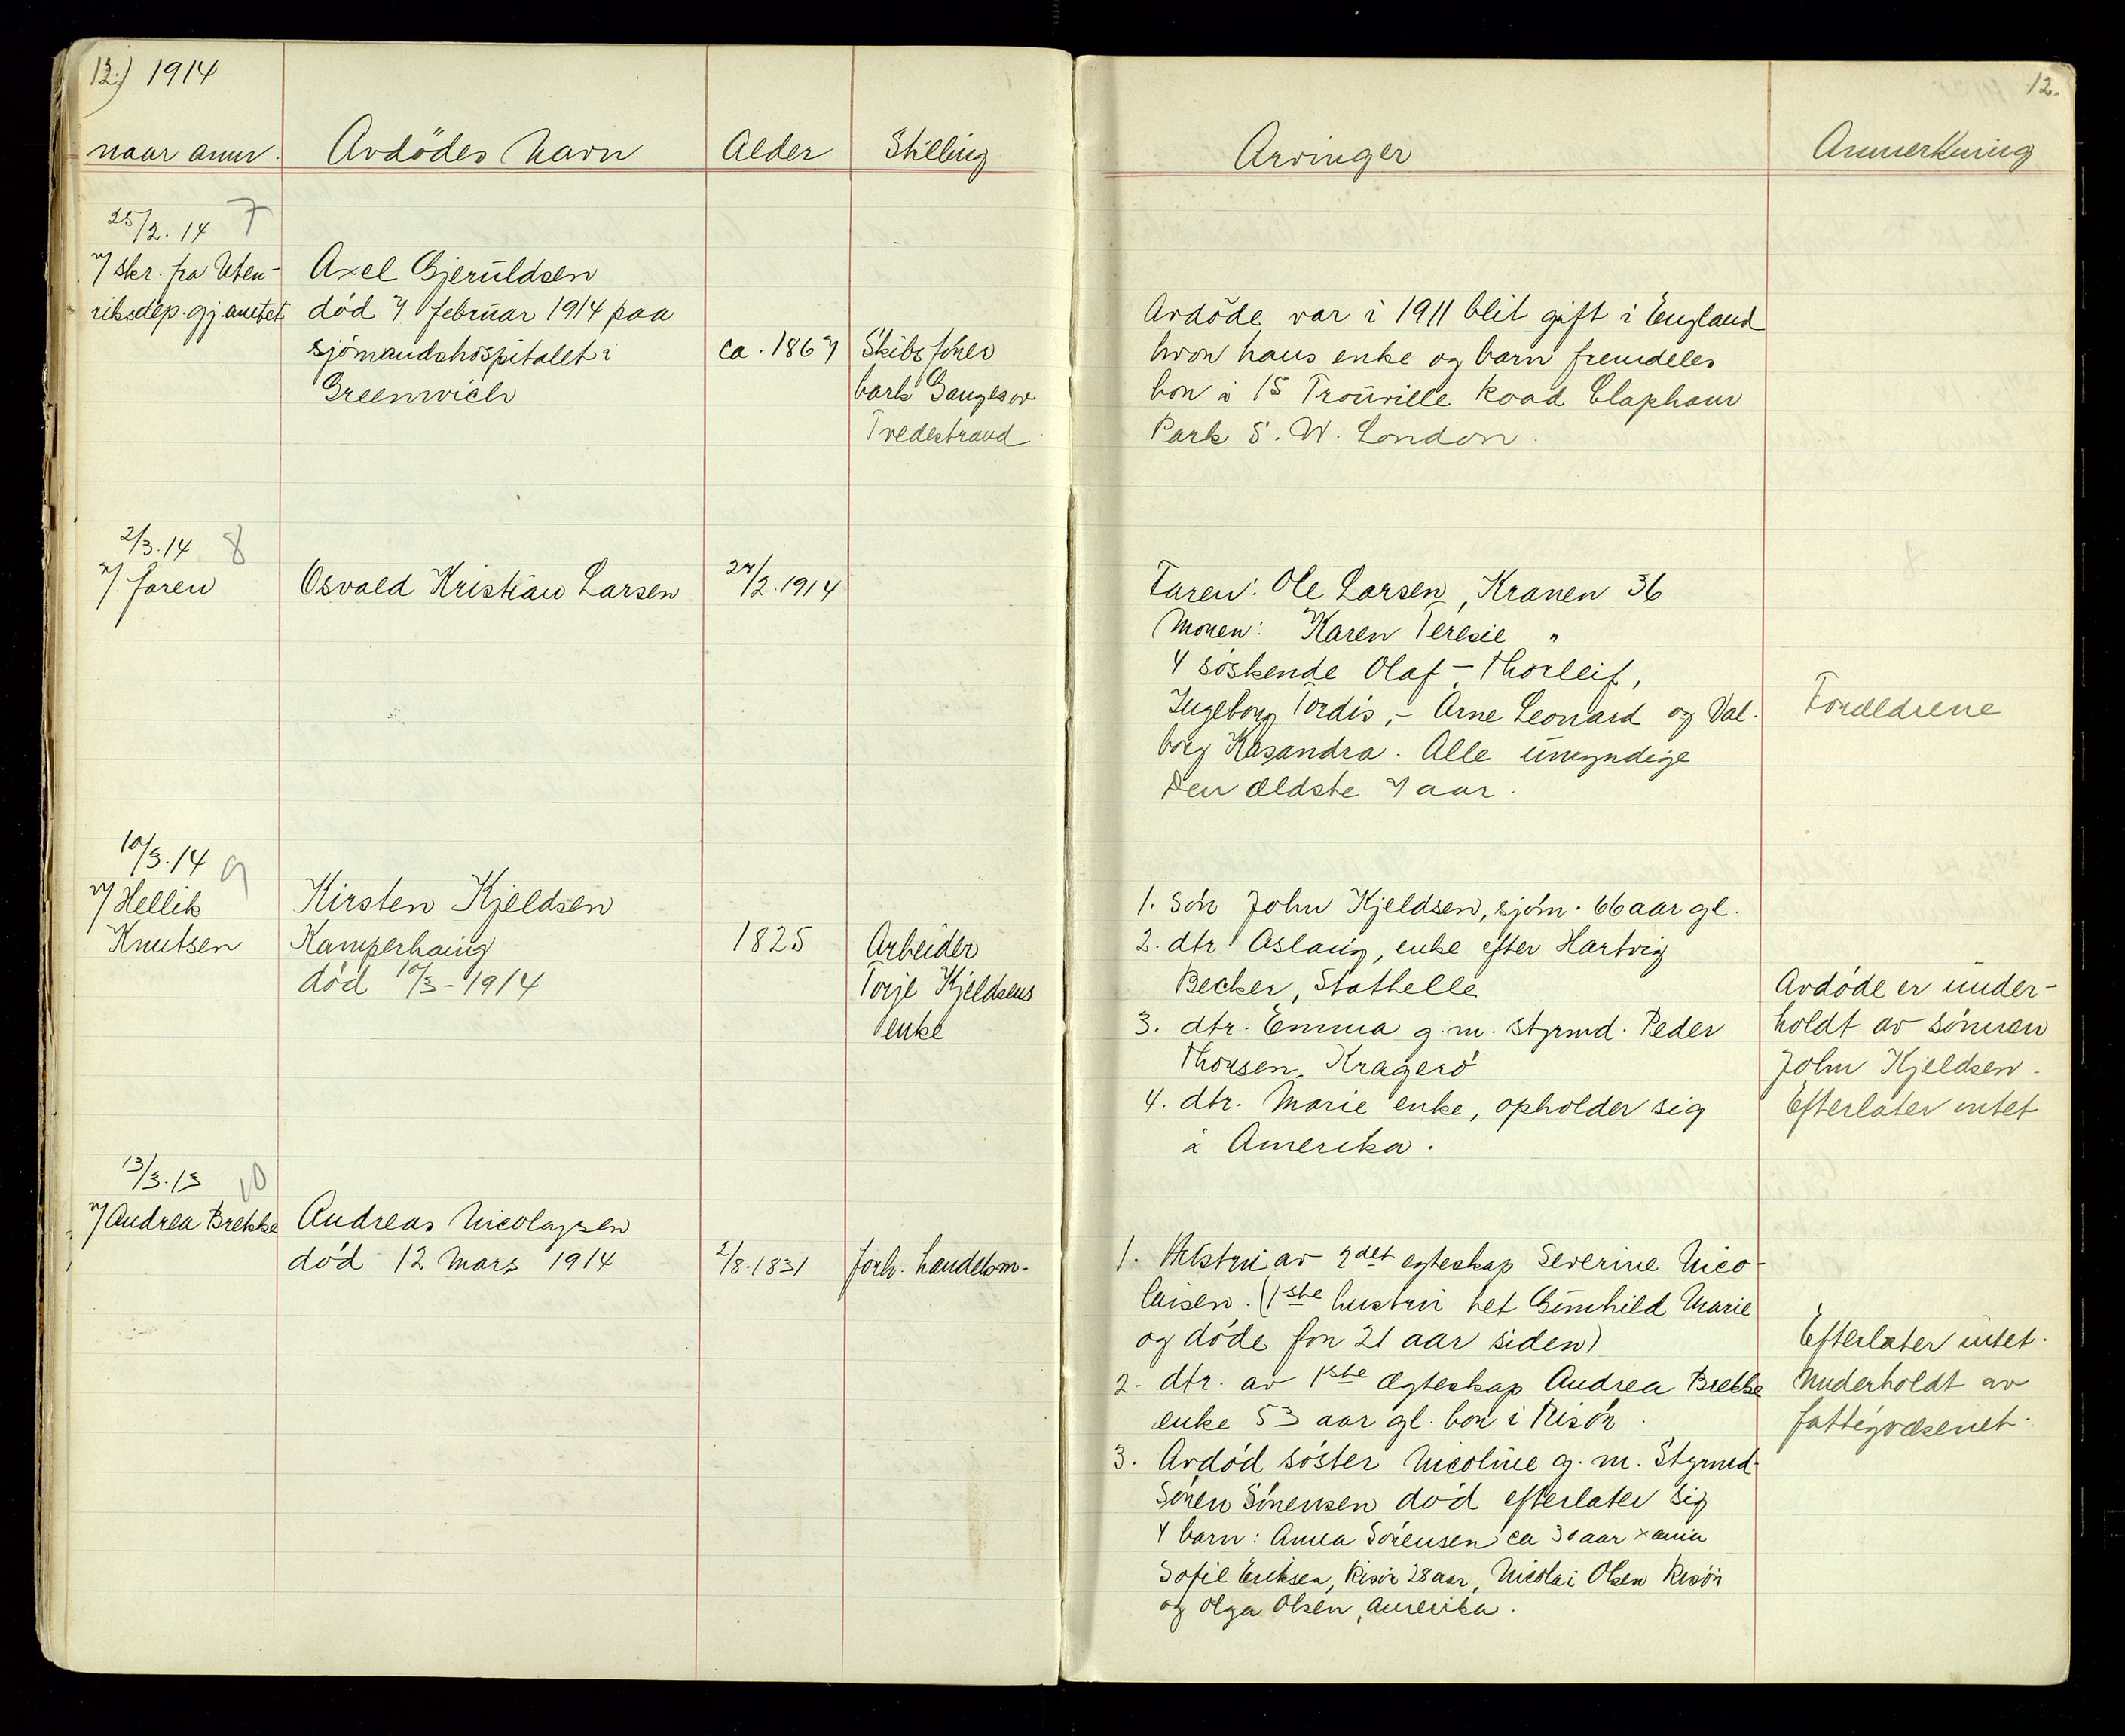 12.) 1914
12.
naar anm. Avdödes navn Alder Stilling Arvinger Anmerkning
25/2. 14 7
v/ skr. fra Uten-
riksdep. gj. amtet
Axel Gjeruldsen
död 7 februar 1914 paa
sjömandshospitalet i
Greenwich
ca. 1867
Skibsförer
bark Ganglaw
Tvedestrand
Avdöde var i 1911 blit gift i England
hvor hans enke og barn fremdeles
bor i 15 Trouville Road Clapham
Park S. W. London.
2/3. 14 8
v/ faren
Osvald Kristian Larsen
24/2. 1914
Faren: Ole Larsen, Kranen 36
Moren: Karen Teresie "
4 söskende Olaf - Thorleif,
Ingeborg Tordis, - Arne Leonard og Val-
borg Kasandra. Alle umyndige
Den ældste 7 aar.
Forældrene
10/3. 14 9
v/ Hellik
Knutsen
Kirsten Kjeldsen
Kamperhaug
död 10/3 - 1914
1825
Arbeider
Torje Kjeldsens
enke
1. Sön John Kjeldsen, sjöm. 66 aar gl.
2. dtr Aslaug, enke efter Hartvig
Becker, Stathelle
3. dtr. Emma g. m. styrmd. Peder
Thorsen, Kragerö
4. dtr. Marie enke, opholder sig
i Amerika.
Avdöde er under-
holdt av sönnen
John Kjeldsen.
Efterlater intet
13/3. 13 10
v/ Andrea Brekke
Andreas Nicolaysen
död 12 Mars 1914
2/8. 1831
Forh. handelsm.
1. Hustru av 2det egteskap Severine Nico-
laisen. (1ste hustru het Gunhild Marie
og döde for 21 aar siden)
2. dtr. av 1ste ægteskap Andrea Brekke
enke 53 aar gl. bor i Risör.
3. Avdöd söster Nicoline g. m. Styrmd.
Sören Sörensen död efterlater sig
4 barn: Anna Sörensen ca 30 aar Xania
Sofie Eriksen, Risör 28 aar, Nicolai Olsen Risör
og Olga Olsen, Amerika.
Efterlater intet.
Underholdt av
fattigvæsenet.